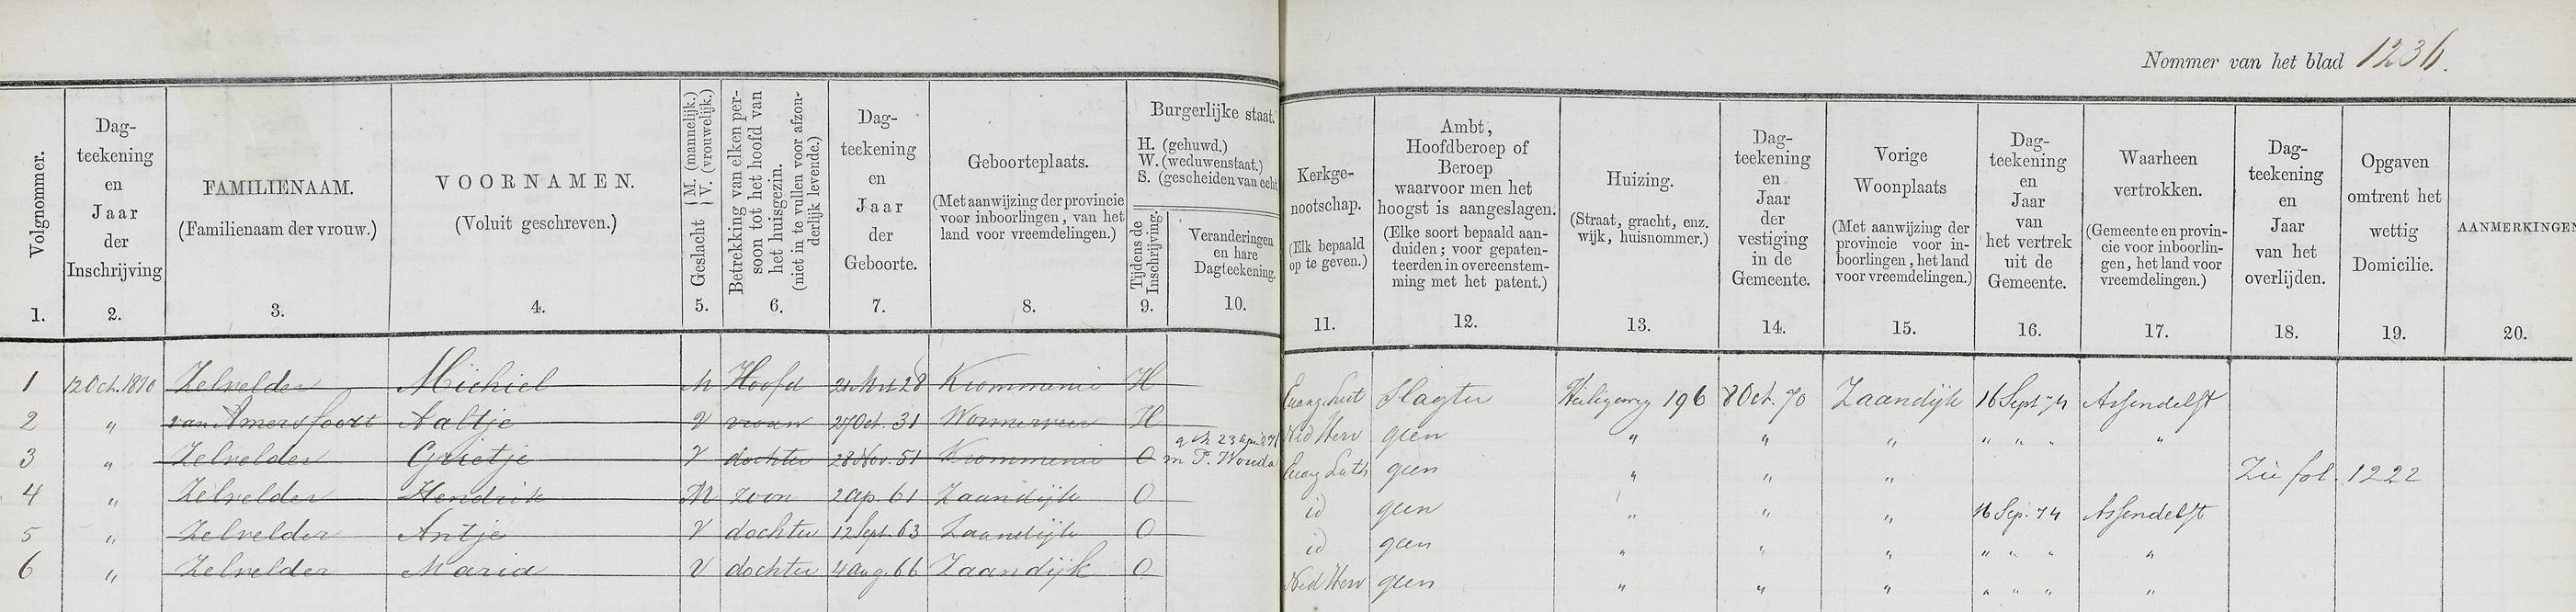 Nommer van het blad 1236.
Volgnommer.
1.
Dag-
teekening
en
Jaar
der
Inschrijving
2.
FAMILIENAAM.
(Familienaam der vrouw.)
3.
VOORNAMEN.
(Voluit geschreven.)
4.
Geslacht { M. (mannelijk.)
V. (vrouwelijk.)
5.
Betrekking van elken per-
soon tot het hoofd van
het huisgezin.
(niet in te vullen voor afzon-
derlijk levende.)
6.
Dag-
teekening
en
Jaar
der
Geboorte.
7.
Geboorteplaats.
(Met aanwijzing der provincie
voor inboorlingen, van het
land voor vreemdelingen.)
8.
Burgerlijke staat.
H. (gehuwd.)
W. (weduwenstaat.)
S. (gescheiden van echt
Tijdens de
Inschrijving.
9.
Veranderingen
en hare
Dagteekening.
10.
Kerkge-
nootschap.
(Elk bepaald
op te geven.)
11.
Ambt,
Hoofdberoep of
Beroep
waarvoor men het
hoogst is aangeslagen.
(Elke soort bepaald aan-
duiden; voor gepaten-
teerden in overeenstem-
ming met het patent.)
12.
Huizing.
(Straat, gracht, enz.
wijk, huisnommer.)
13.
Dag-
teekening
en
Jaar
der
vestiging
in de
Gemeente.
14.
Vorige
Woonplaats
(Met aanwijzing der
provincie voor in-
boorlingen, het land
voor vreemdelingen.)
15.
Dag-
teekening
en
Jaar
van
het vertrek
uit de
Gemeente.
16.
Waarheen
vertrokken.
(Gemeente en provin-
cie voor inboorlin-
gen, het land voor
vreemdelingen.)
17.
Dag-
teekening
en
Jaar
van het
overlijden.
18.
Opgaven
omtrent het
wettig
Domicilie.
19.
AANMERKINGEN
20.
1 12 Oct. 1870 Zelvelder Michiel M Hoofd 21 Mrt 28 Krommenie H Evang. Luth Slagter Heiligeweg 196 8 Oct. 70 Zaandijk 16 Sept 74 Assendelft
2 " van Amersfoort Aaltje V vrouw 27 Oct. 31 Wormerveer H Ned Herv geen " " " " " " "
3 " Zelvelder Grietje V dochter 28 Nov. 51 Krommenie O geh 23 April 71 m P. Wouda Evang Luth geen " " " Zie fol. 1222
4 " Zelvelder Hendrik M zoon 2 Ap. 61 Zaandijk O id geen " " " 16 Sep. 74 Assendelft
5 " Zelvelder Antje V dochter 12 Sept. 63 Zaandijk O id geen " " " " " " "
6 " Zelvelder Maria V dochter 4 Aug. 66 Zaandijk O Ned Herv geen " " " " " " "